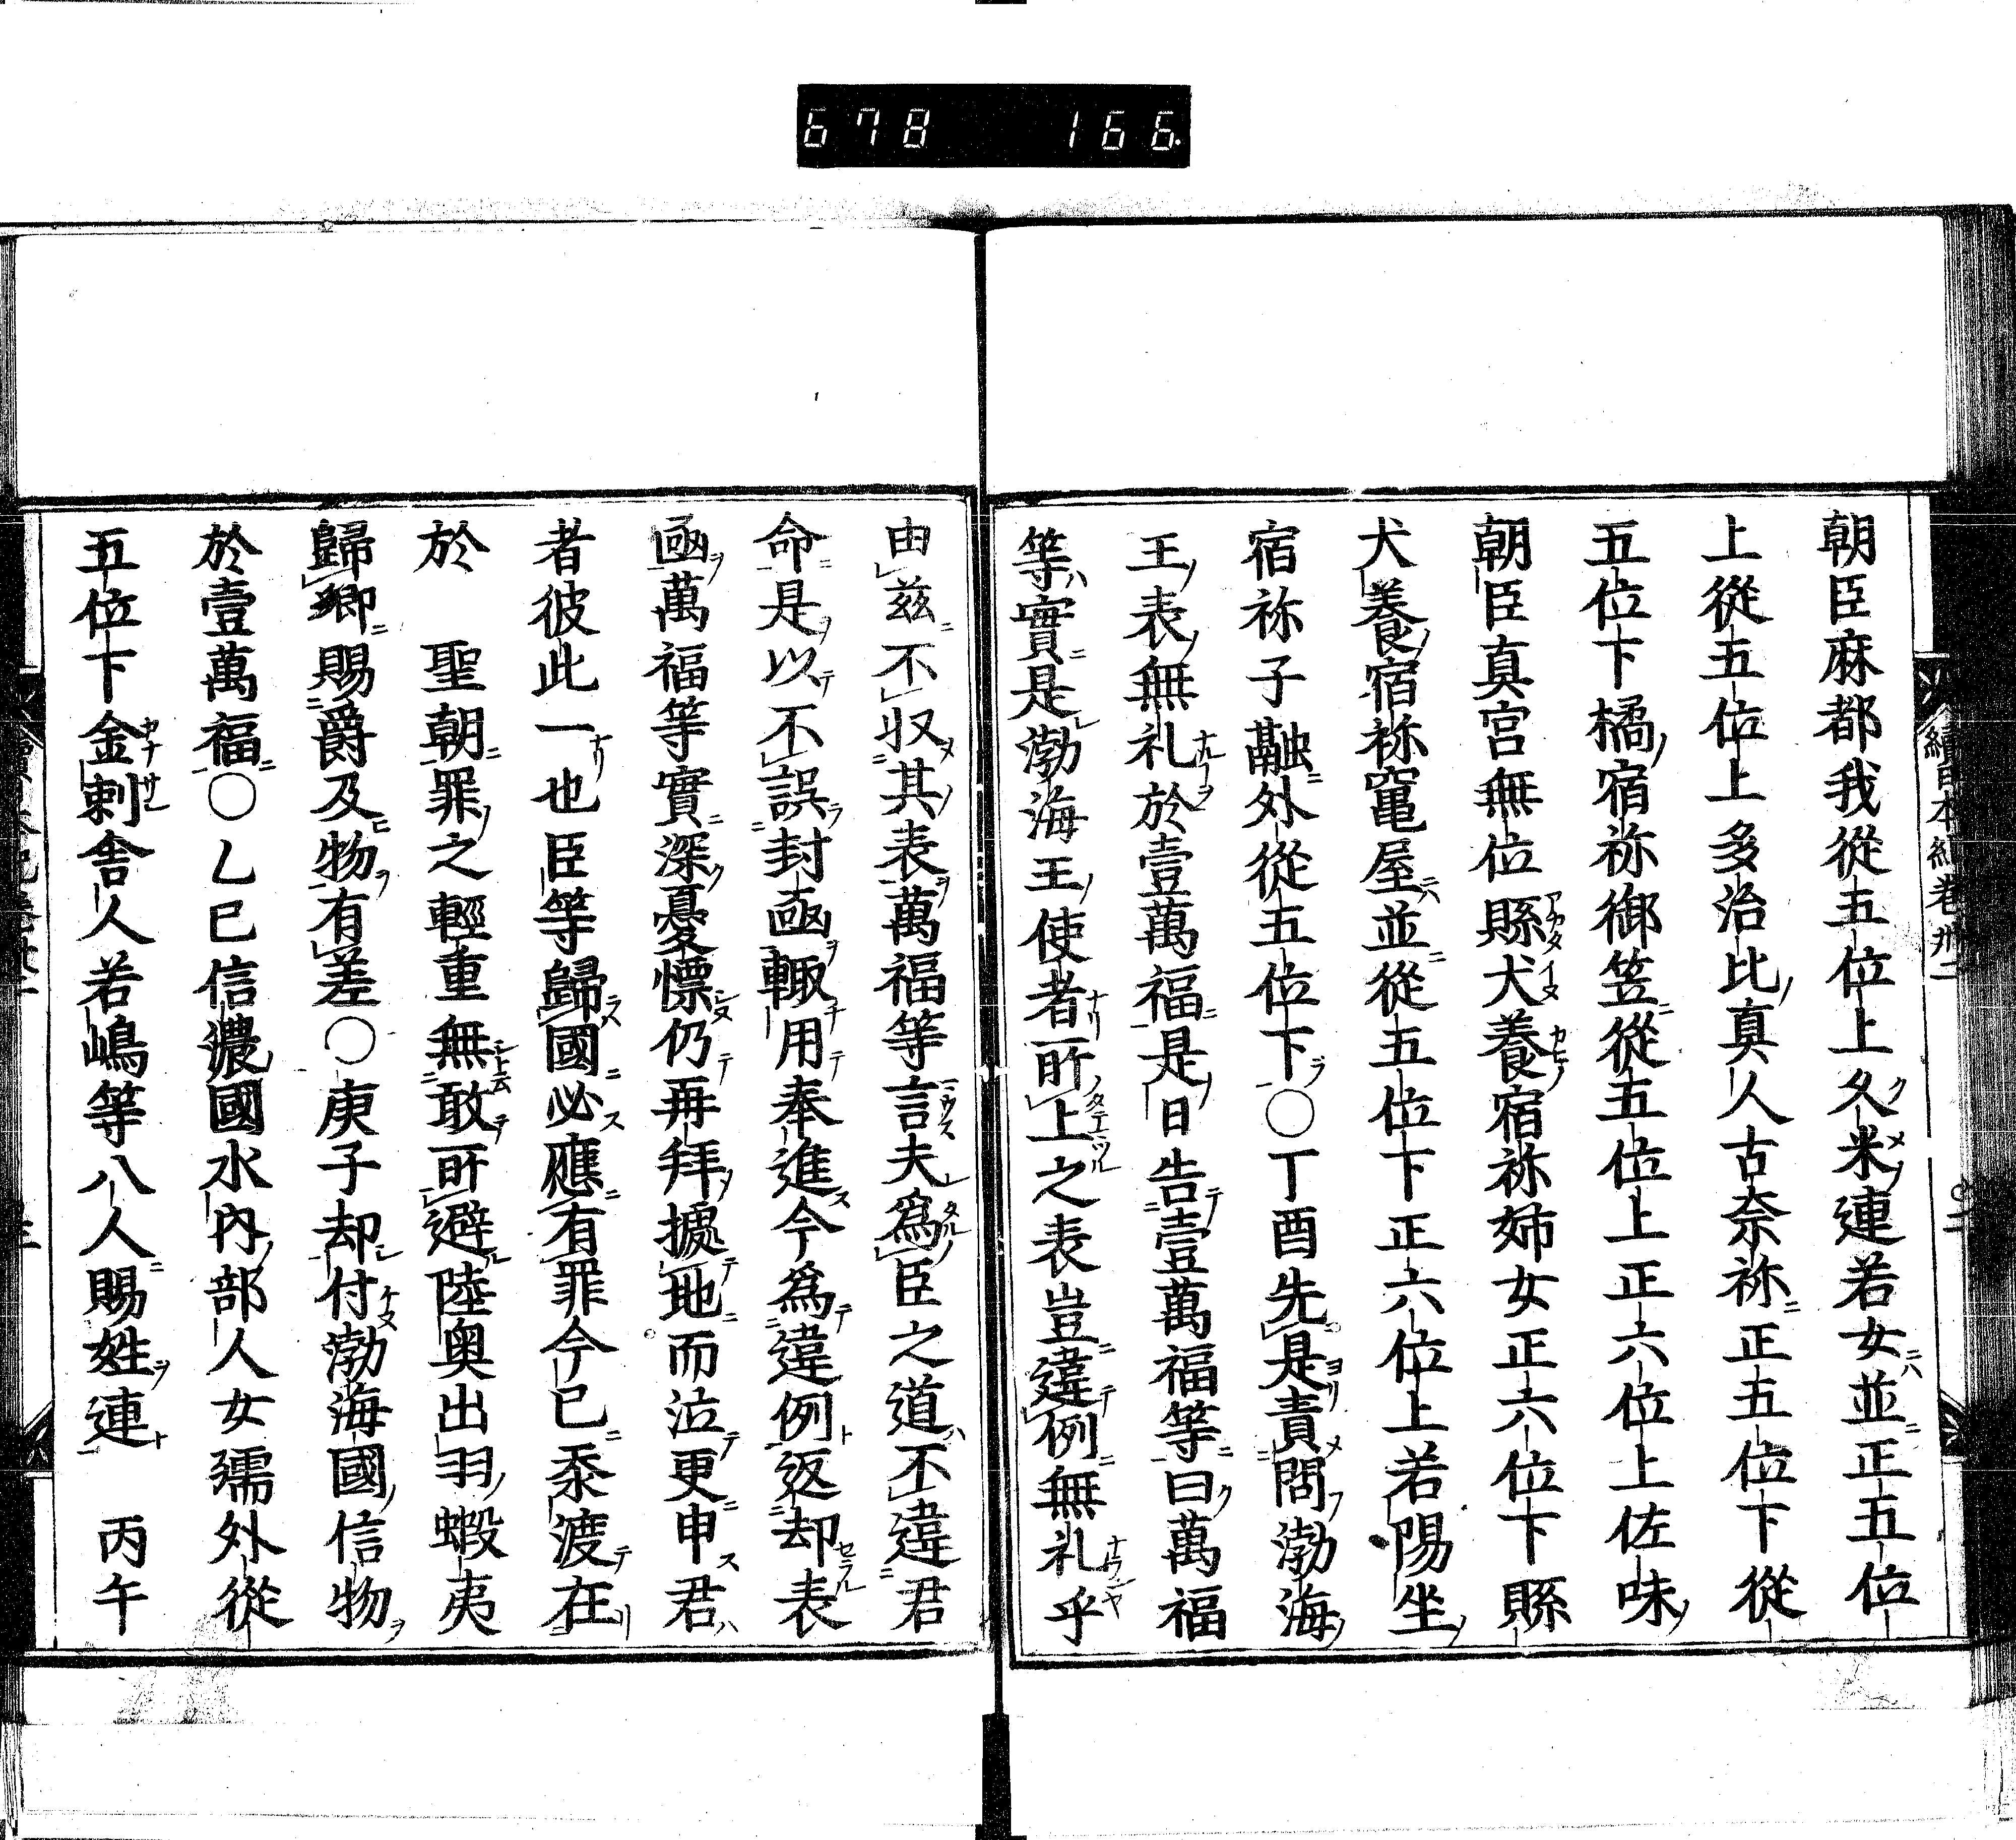 678 166.
續日本紀卷卅二
朝臣麻都我從五位上久米連若女並正五位
上從五位上多治比真人古奈祢正五位下從
五位下橘宿祢御笠從五位上正六位上佐味
朝臣真宮無位縣犬養宿祢姉女正六位下縣
犬養宿祢竃屋並從五位下正六位上若陽坐
宿祢子虦外從五位下○丁酉先是責問渤海
王表無礼於壹萬福是日告壹萬福等曰萬福
等實是渤海王使者所上之表豈違例無礼乎
由茲不収其表萬福等言夫爲臣之道不違君
命是以不誤封凾輙用奉進今爲違例返却表
凾萬福等實深憂慄仍再拜據地而泣更申君
者彼此一也臣等歸國必應有罪今已叅渡在
於　聖朝罪之輕重無敢所避陸奥出羽蝦夷
歸鄉賜爵及物有差○庚子却付渤海國信物
於壹萬福○乙巳信濃國水內部人女孺外從
五位下金刺舎人若嶋等八人賜姓連　丙午